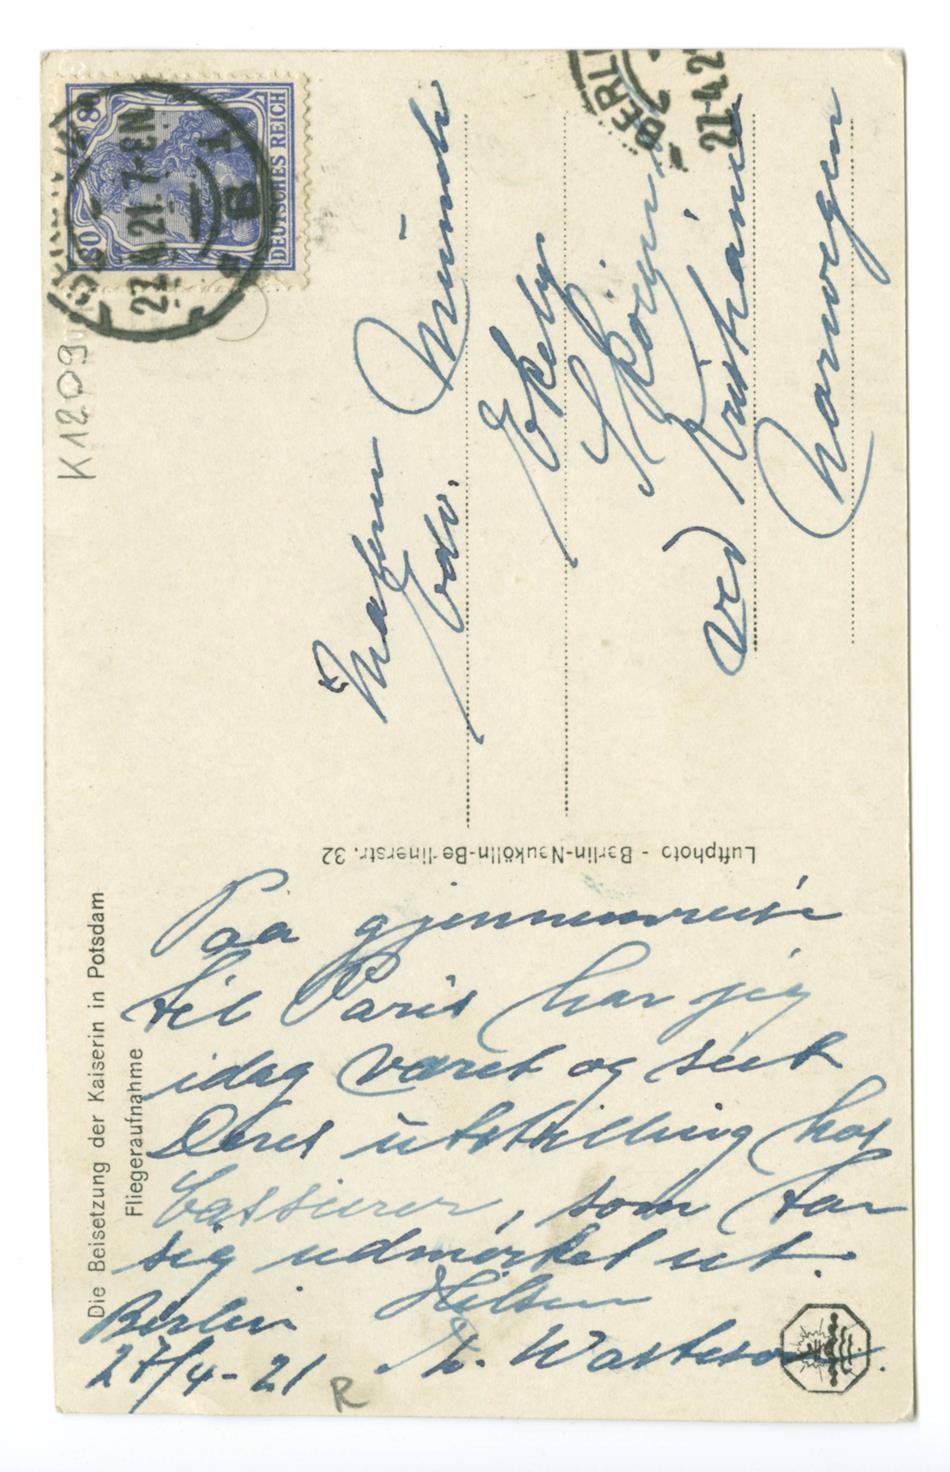 Die Beisetzung der Kaiserin in Potsdam
Fliegeraufnahme
Paa gjennemreise
til Paris har jeg
idag været og seet
Deres utstilling hos
Cassierer, som tar
sig udmerket ut.
Hilsen
Berlin
27/4-21
Th. Warteso
R
Luftphoto - Berlin-Neukölln-Berlinerstr. 32
K1209
80 80
DEUTSCHES REICH
27.4.21.7-8N.
* B 1
BERLI
27.4.2
Maleren
Edv. Munch
Ekely
Skøyen
ved Kristiania
Norwegen